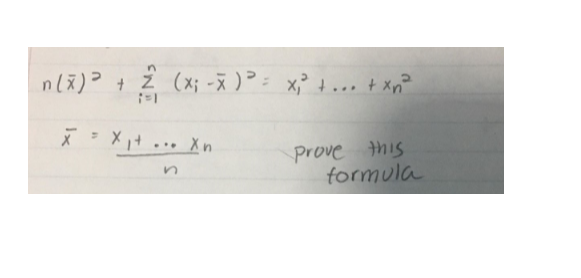 n(x̄)² + Σ (xᵢ - x̄)² = x₁² + ... + xₙ²
n
i=1
x̄ = x₁+ ... xₙ
n
prove this
formula